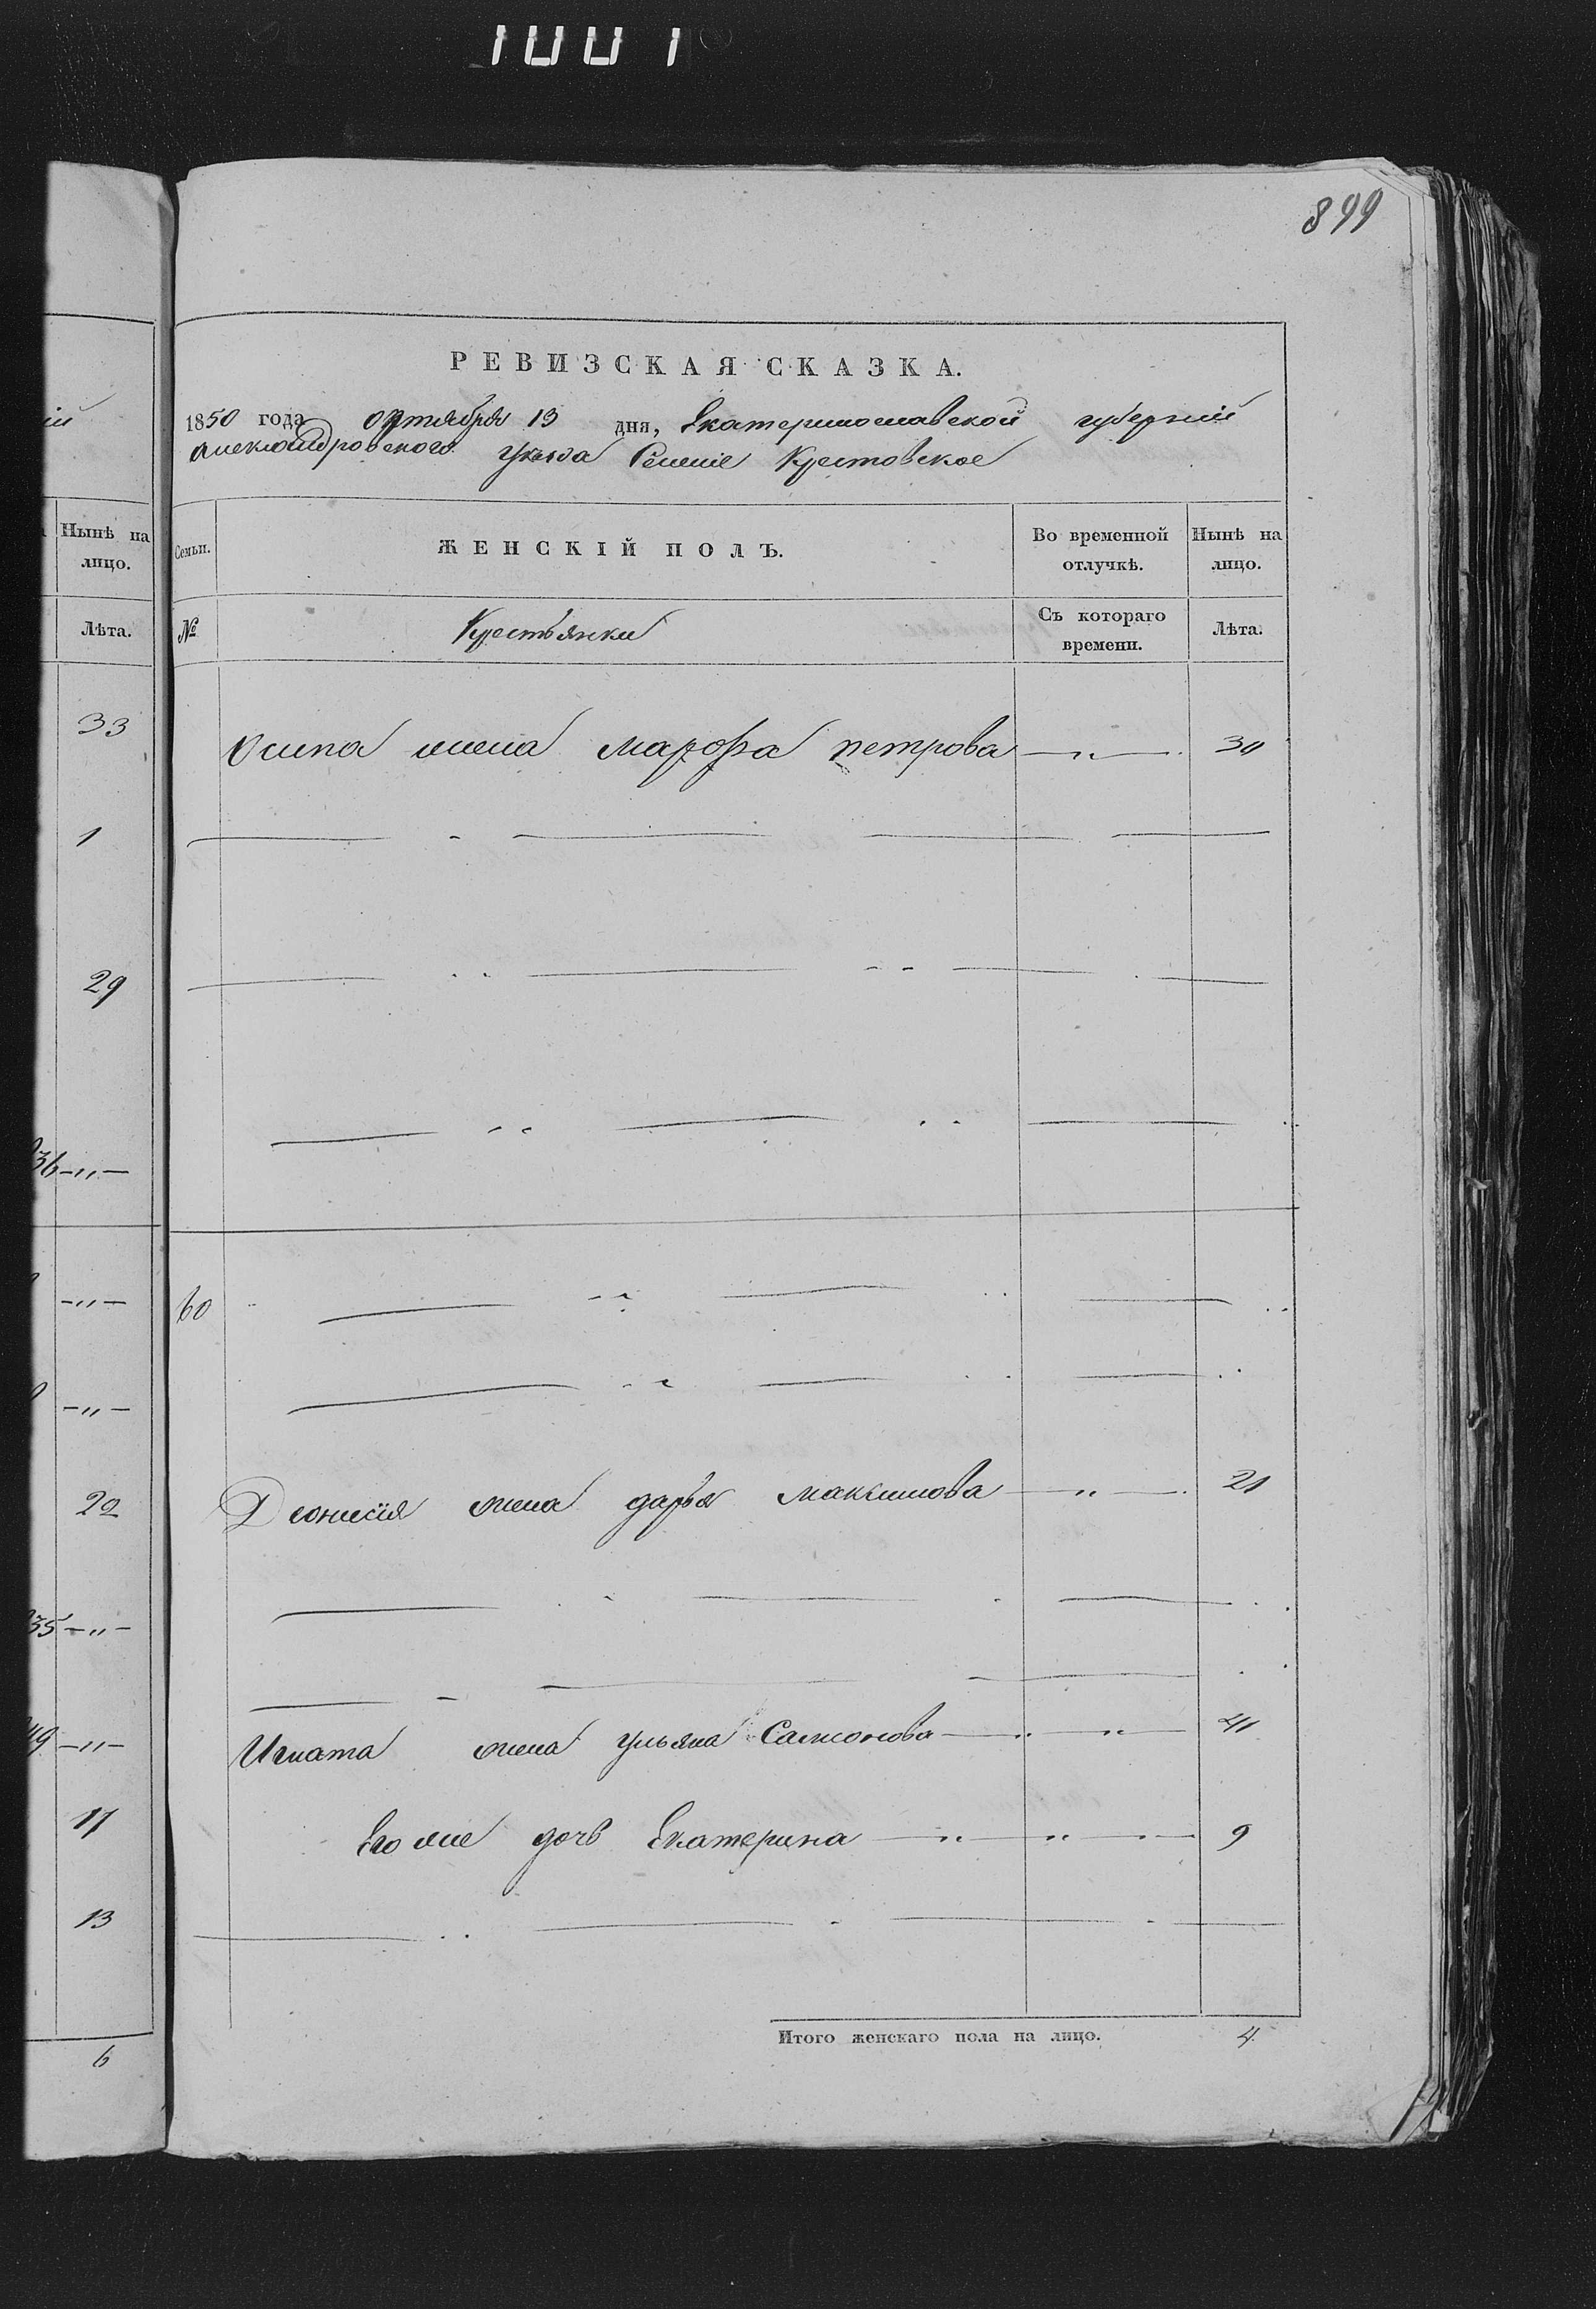 1001
899
РЕВИЗСКАЯ СКАЗКА.
1850 года октября 13 дня, Екатеринославской губерніи
Александровского уезда Селеніе Крестовское
ій
Нынѣ на лицо.
Лѣта.
33
1
29
36 —„—
—„—
—„—
22
35 —„—
49 —„—
11
13
6
Семьи.
ЖЕНСКІЙ ПОЛЪ.
Во временной отлучкѣ.
Нынѣ на лицо.
№
Крестьянки
Съ котораго времени.
Лѣта.
Осипа жена марофа петрова —„— 30
60
Деонисія жена дарья максимова —„— 21
Игната жена ульяна Самсонова —„— 41
Его же дочь Екатерина —„— 9
Итого женскаго пола на лицо. 4.